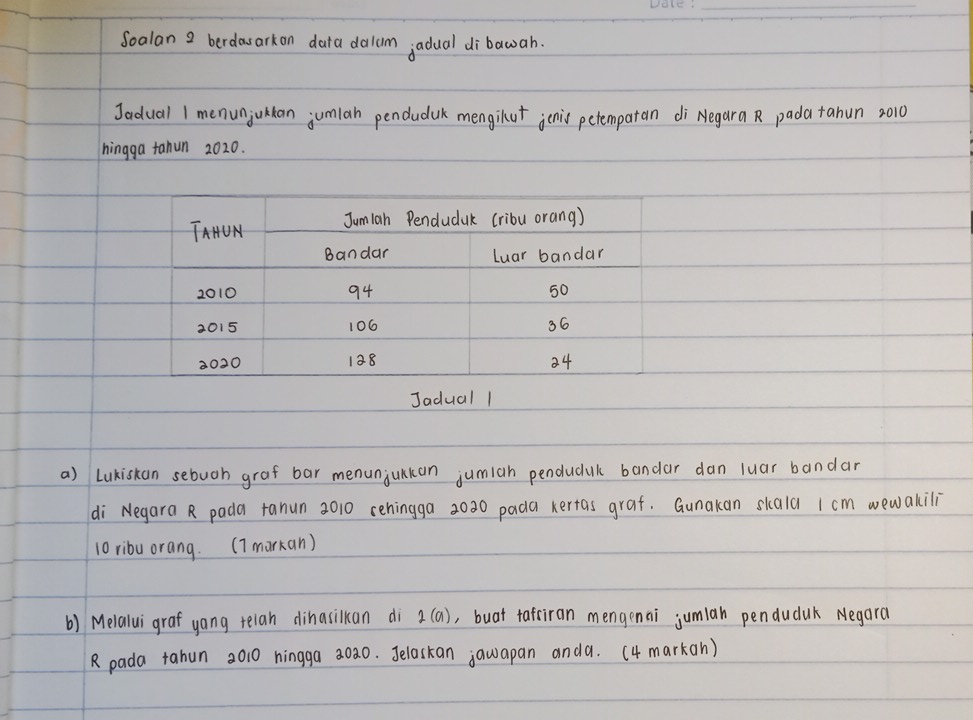 Date :
Soalan 2 berdasarkan data dalam jadual di bawah.
Jadual 1 menunjukkan jumlah penduduk mengikut jenis petempatan di Negara R pada tahun 2010
hingga tahun 2020.
TAHUN Jumlah Penduduk (ribu orang)
Bandar Luar bandar
2010 94 50
2015 106 36
2020 128 24
Jadual 1
a) Lukiskan sebuah graf bar menunjukkan jumlah penduduk bandar dan luar bandar
di Negara R pada tahun 2010 sehingga 2020 pada kertas graf. Gunakan skala 1 cm wewakili
10 ribu orang. (7 markah)
b) Melalui graf yang telah dihasilkan di 2(a), buat tafsiran mengenai jumlah penduduk Negara
R pada tahun 2010 hingga 2020. Jelaskan jawapan anda. (4 markah)